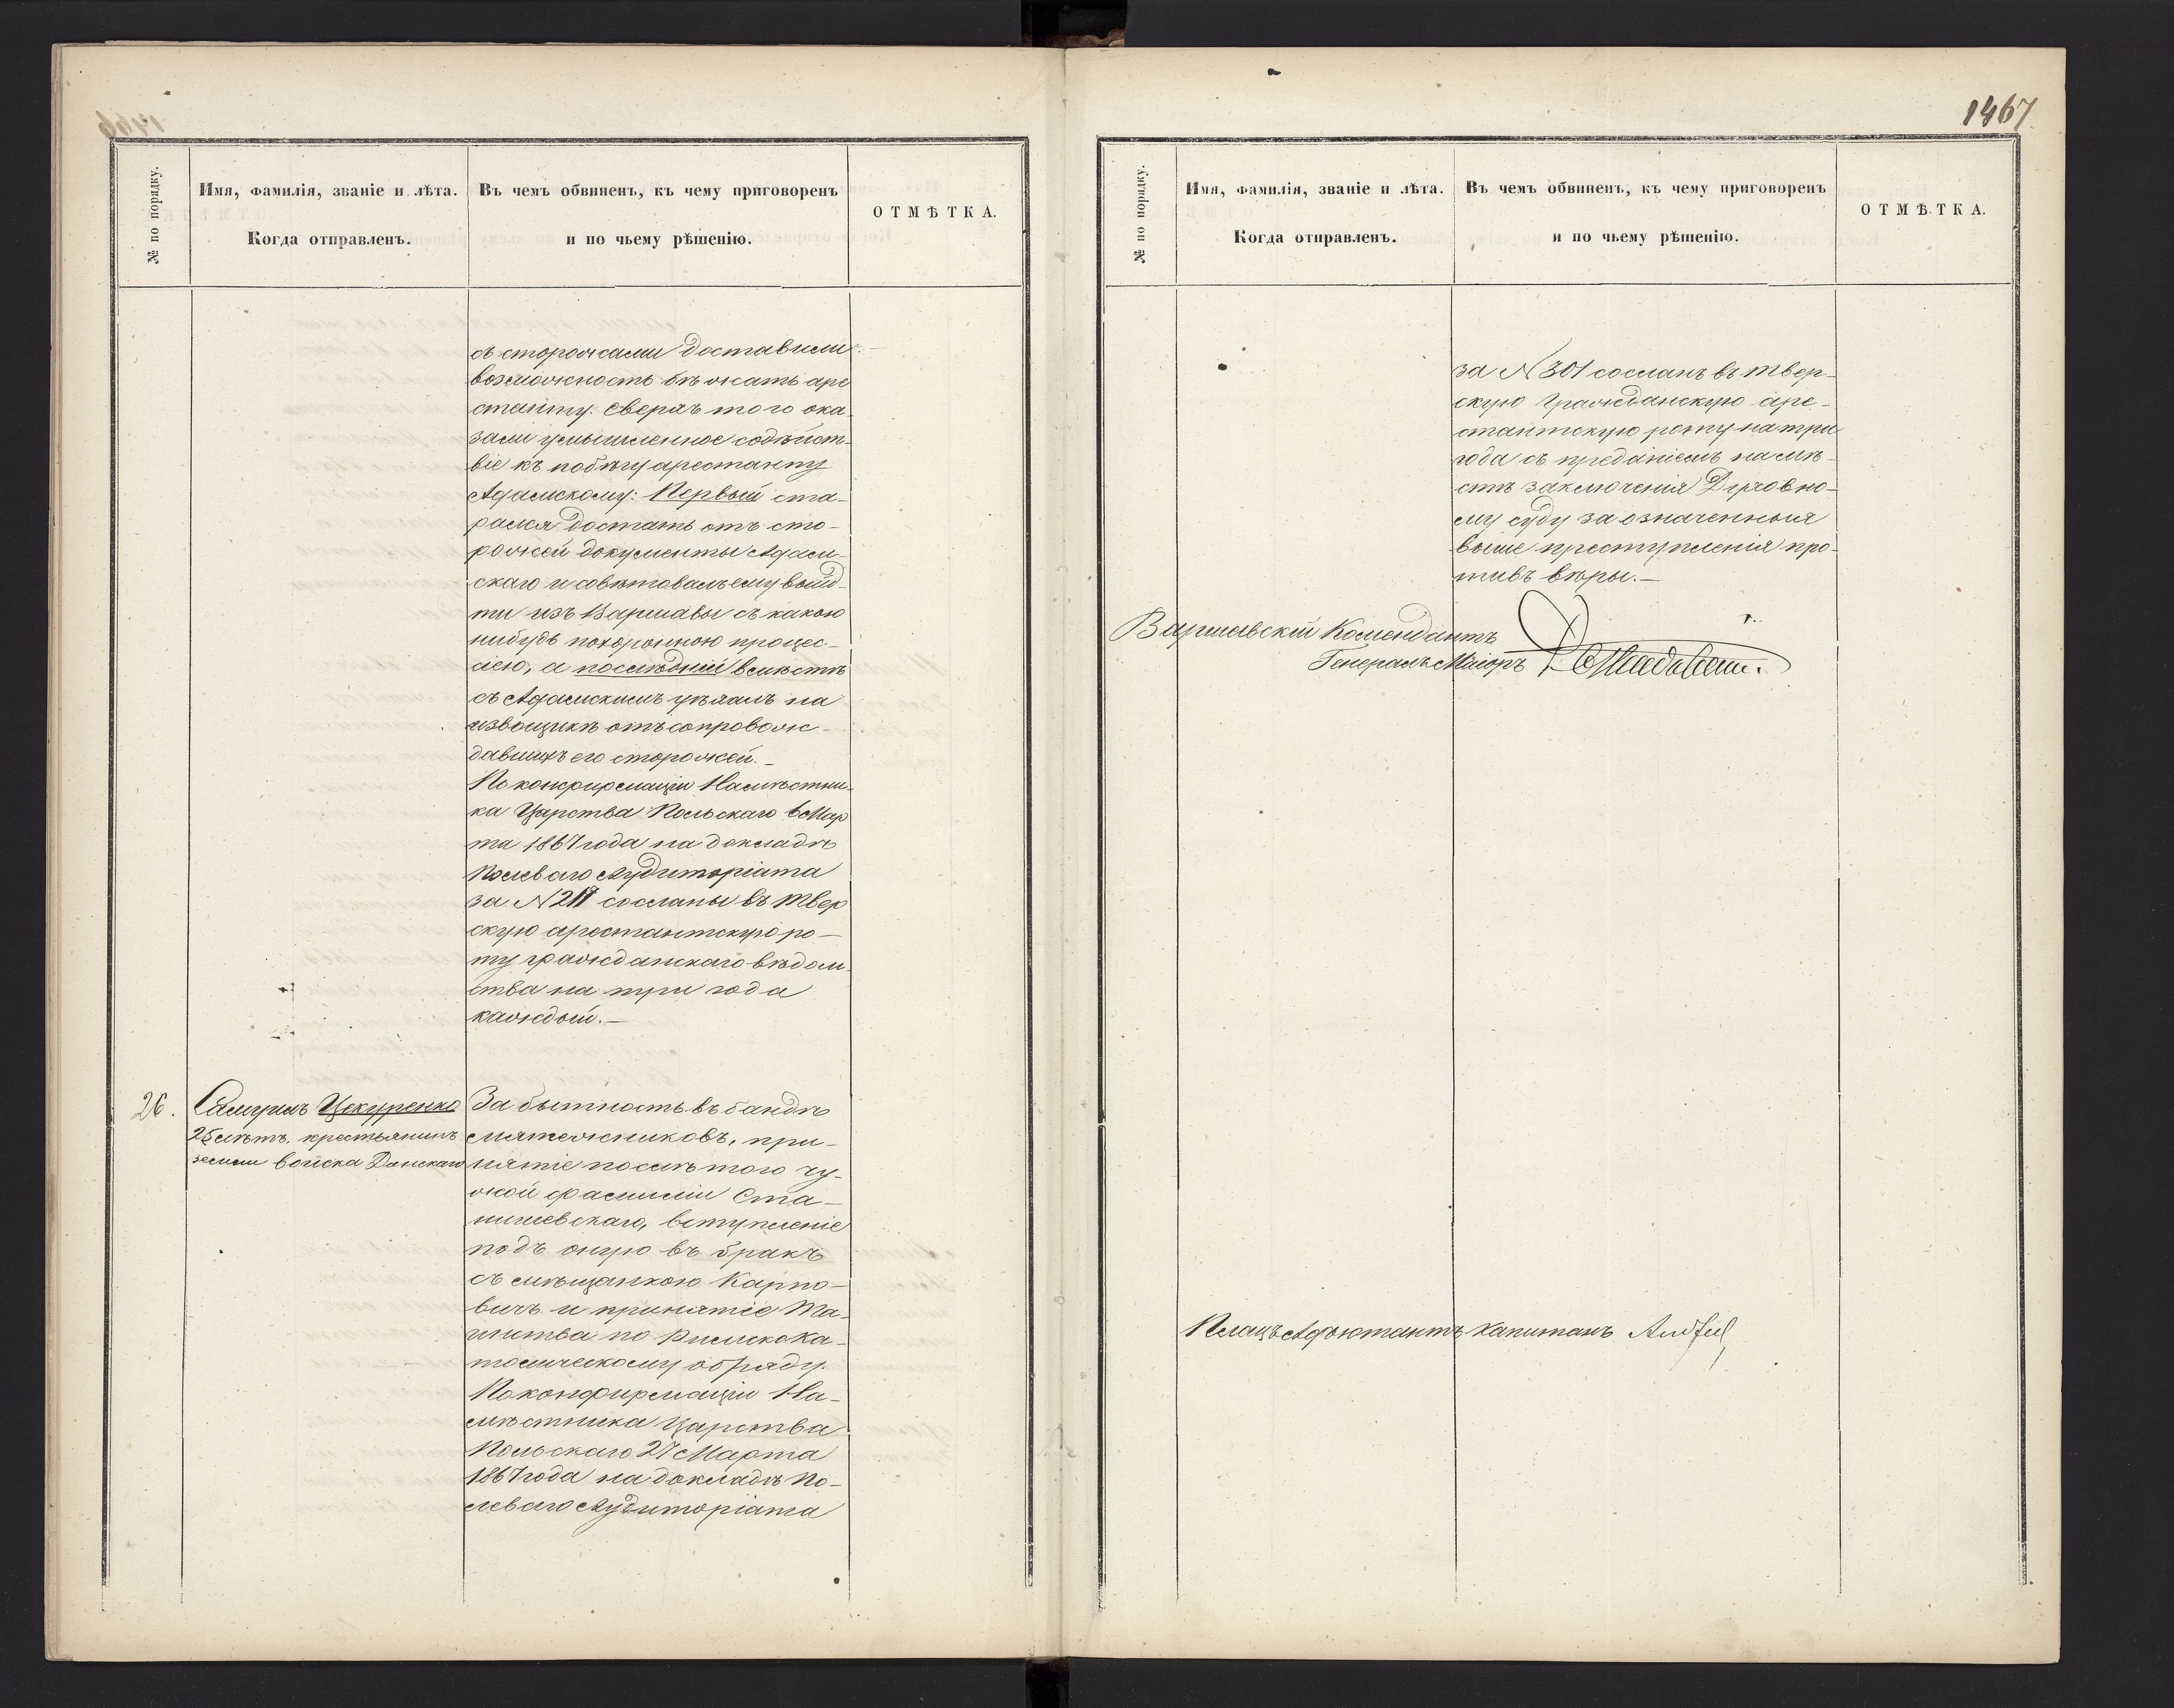 № по порядку.
Имя, фамилія, званіе и лѣта.
Когда отправленъ.
Въ чемъ обвиненъ, къ чему приговоренъ
и по чьему рѣшенію.
ОТМѢТКА.
съ сторожами доставили
возможность бѣжать аре
станту. Сверхъ того ока
зали умышленное содѣйст-
віе къ побѣгу арестанту
Адамскому: Первый ста-
рался достать отъ сто-
рожей документы Адам-
скаго и совѣтовалъ ему выйд-
ти изъ Варшавы съ какою
нибудь похоронною процес-
сіею, а послѣдній вмѣстѣ
съ Адамскимъ уѣхалъ на
извощикѣ отъ сопровож-
давшихъ его сторожей.–
По конфирмаціи Намѣстни-
ка Царства Польскаго 6 Мар
та 1867 года на докладѣ
Полеваго Аудиторіата
за N сосланы въ Твер
скую арестантскую ро-
ту гражданскаго вѣдом-
ства на три года
каждый.–
26.
Самуилъ Цекуренко
25 лѣтъ. крестьянинъ
земли войска Донскаго
За бытность въ бандѣ
мятежниковъ, при-
нятіе послѣ того чу-
жой фамиліи Ста-
нишевскаго, вступленіе
подъ оную въ бракъ
съ мѣщанкою Карпо-
вичъ и принятіе Та-
инства по Римскока-
толическому обряду.
По конфирмаціи На-
мѣстника Царства
Польскаго 27 Марта
1867 года на докладѣ По-
леваго Аудиторіата
1467
№ по порядку.
Имя, фамилія, званіе и лѣта.
Когда отправленъ.
Въ чемъ обвиненъ, къ чему приговоренъ
и по чьему рѣшенію.
ОТМѢТКА.
за N 301 сосланъ въ Твер-
скую Гражданскую аре-
стантскую роту на три
года съ преданіемъ на мѣ-
стѣ заключенія Духовно-
му суду за означенныя
выше преступленія про-
тивъ вѣры.–
Варшавскій Комендантъ
Генералъ Маіоръ
Плацъ Адъютантъ Капитанъ